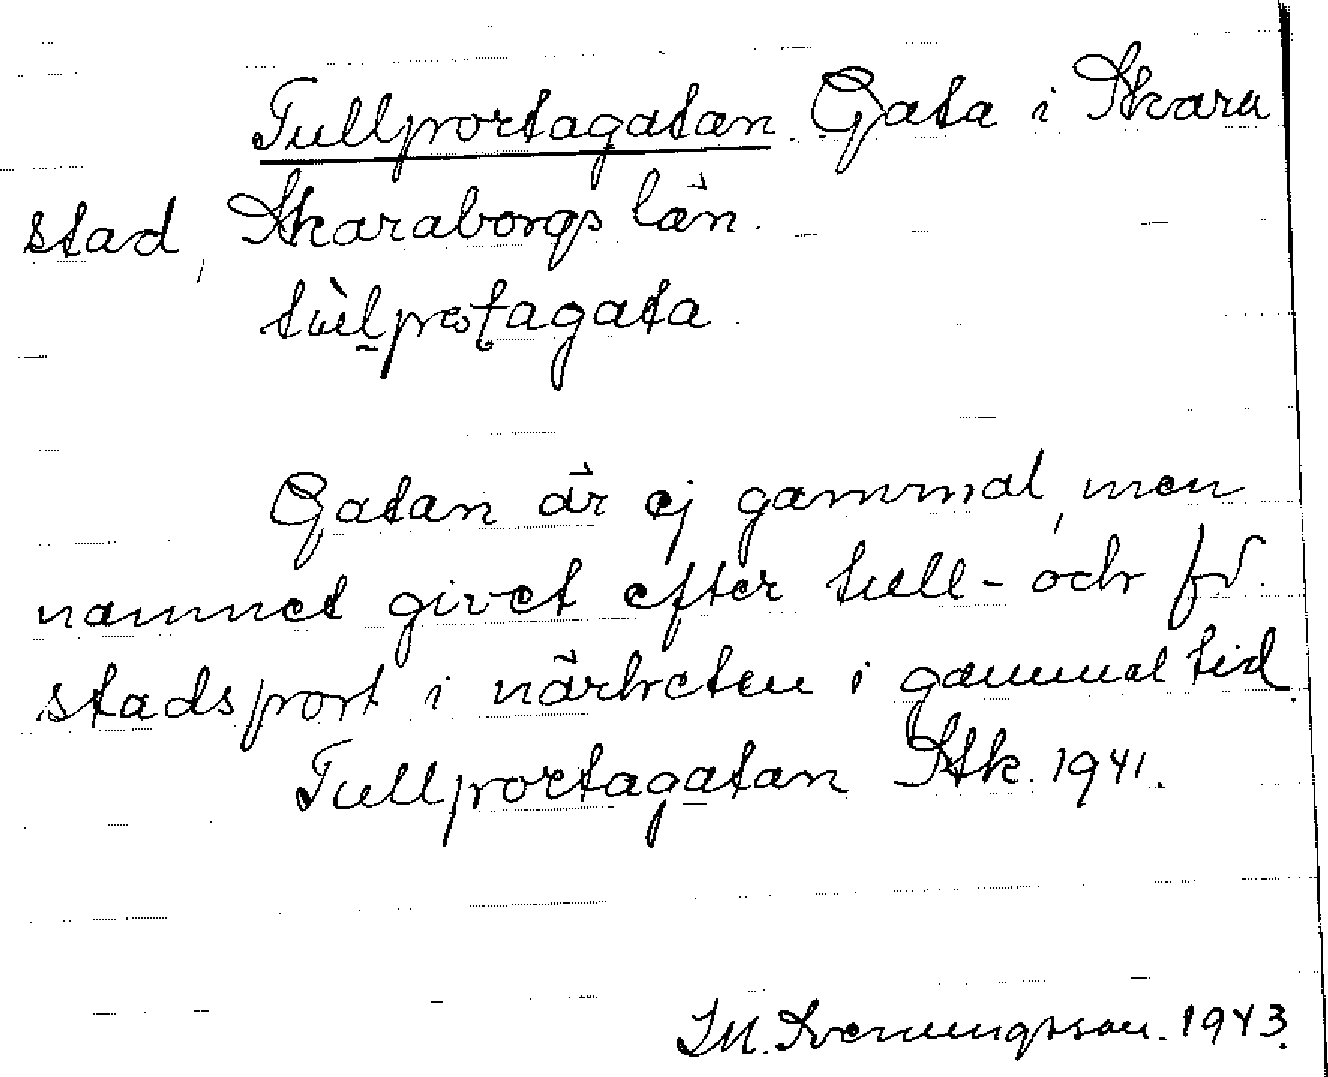 Tullportagatan. Gata i Skara
stad, Skaraborgs län.
Gatan är ej gammal, men
namnet givet efter tull- och f.d.
stadsport i närheten i gammal tid.
Tullportagatan Stk. 1941.
M. Svenungsson. 1943.